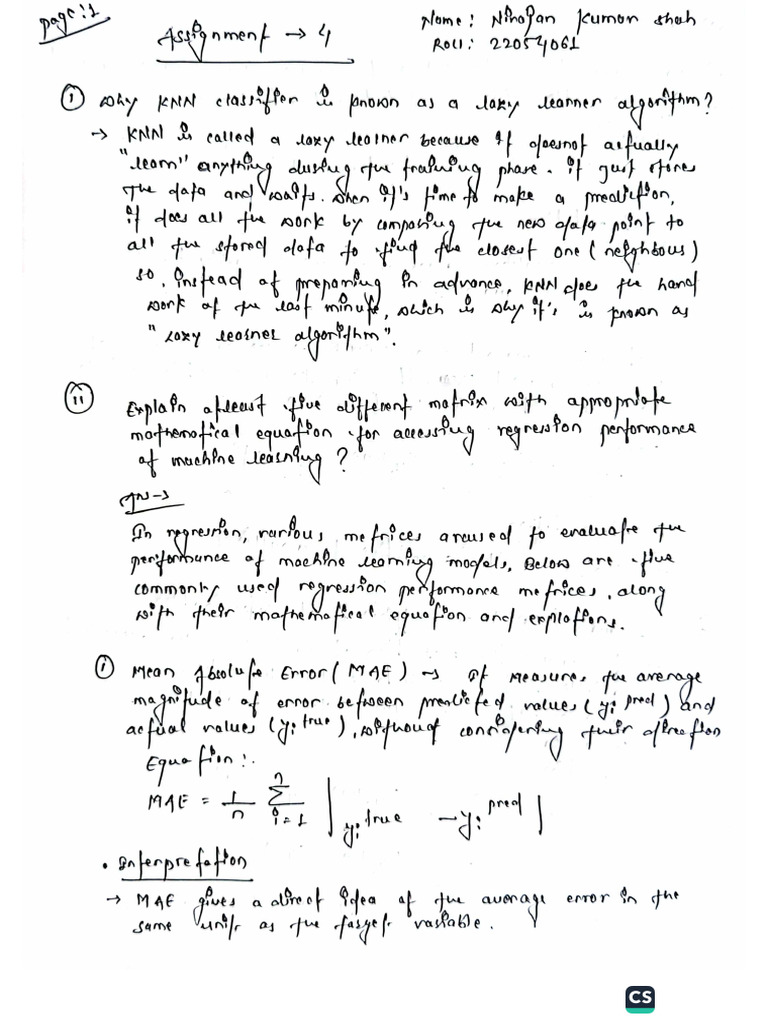 page:1
Assignment → 4
Name: Niranjan Kumar Shah
Roll: 22054061
(i) Why KNN classifier is known as a lazy learner algorithm?
→ KNN is called a lazy learner because it doesnot actually
"learn" anything during the training phase. it just stores
the data and waits. when it's time to make a prediction,
it does all the work by comparing the new data point to
all the stored data to find the closest one (neighbous)
so, instead of preparing in advance, KNN does the hard
work at the last minute, which is why it's is known as
"Lazy learner algorithm".
(ii) Explain atleast five different matrix with appropriate
mathematical equation for accessing regression performance
of machine learning?
Ans→
In regression, various metrices are used to evaluate the
performance of machine learning models. Below are five
commonly used regression performance metrices, along
with their mathematical equation and explations.
(i) Mean Absolute Error (MAE) → It measures the average
magnitude of error between predicted values (yi pred) and
actual values (yi true), without considering their direction
Equation:.
MAE = 1/n n Σ i=1 | yi true - yi pred |
• Interpretation
→ MAE gives a direct idea of the average error in the
same unit as the target variable.
CS